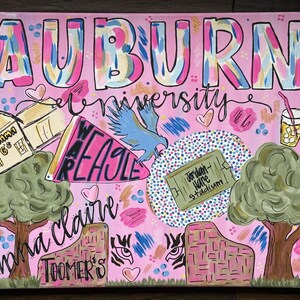 AUBURN
University
WAR
EAGLE
Jordan-
Hare
stadium
Anna Claire
TOOMER'S